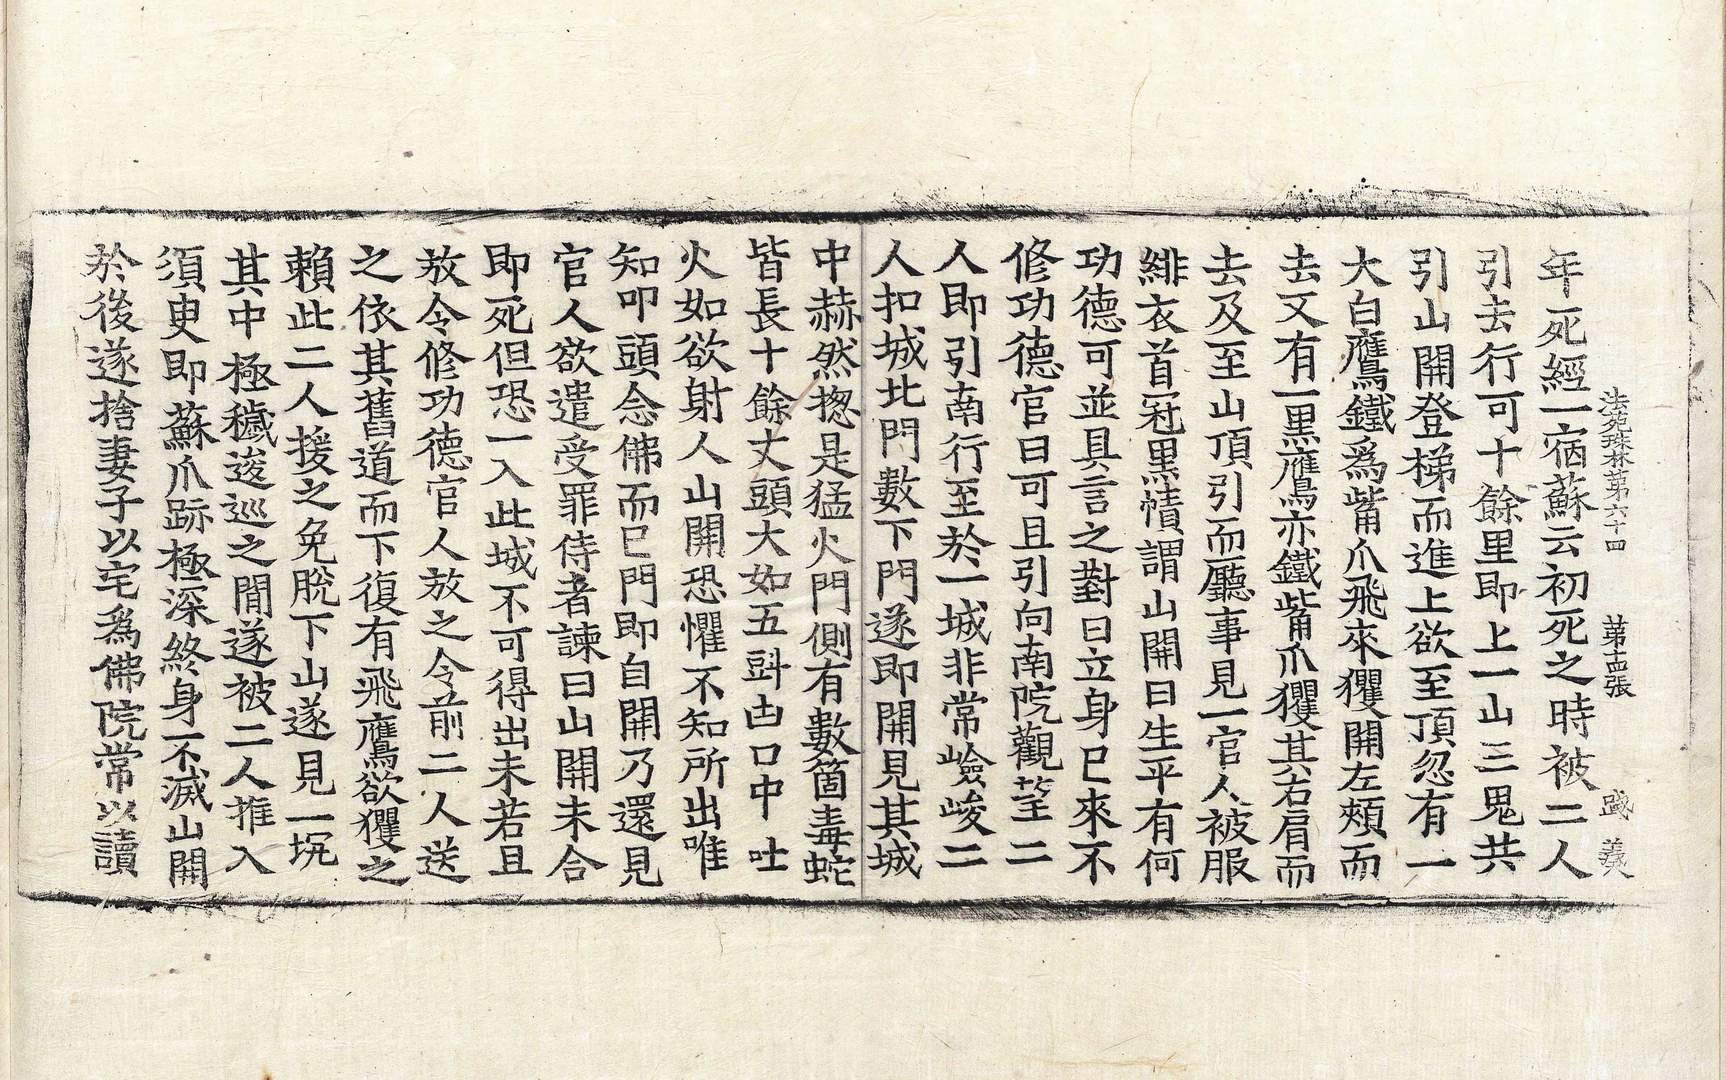 法苑珠林第六十四 第十四張 踐 義
年死經一宿蘇云初死之時被二人
引去行可十餘里即上一山三鬼共
引山開登梯而進上欲至頂忽有一
大白鷹鐵爲觜爪飛來玃開左頰而
去又有一黑鷹亦鐵觜爪玃其右肩而
去及至山頂引而廳事見一官人被服
緋衣首冠黑幘謂山開曰生平有何
功德可並具言之對曰立身已來不
修功德官曰可且引向南院觀望二
人即引南行至於一城非常嶮峻二
人扣城北門數下門遂即開見其城
中赫然揔是猛火門側有數箇毒蛇
皆長十餘丈頭大如五㪷白口中吐
火如欲射人山開恐懼不知所出唯
知叩頭念佛而已門即自開乃還見
官人欲遣受罪侍者諫曰山開未合
即死但恐一入此城不可得出未若且
放令修功德官人放之令前二人送
之依其舊道而下復有飛鷹欲玃之
賴此二人援之免脫下山遂見一坑
其中極穢逡巡之閒遂被二人推入
須臾即蘇爪跡極深終身不滅山開
於後遂捨妻子以宅爲佛院常以讀